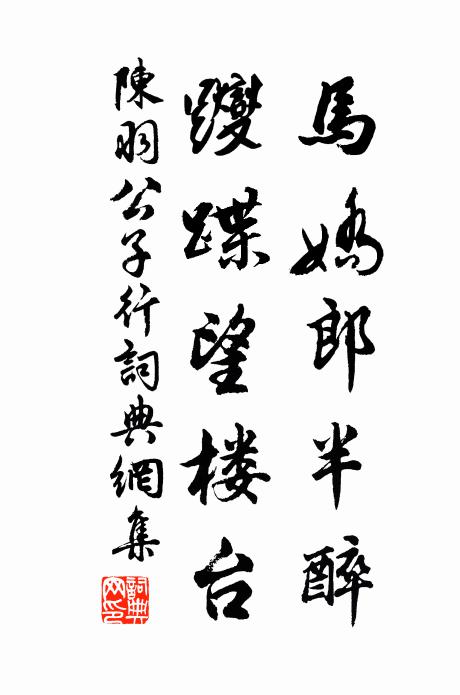 馬嬌郎半醉
躞蹀望楼台
陳羽公子行詞典網集
詞典网印